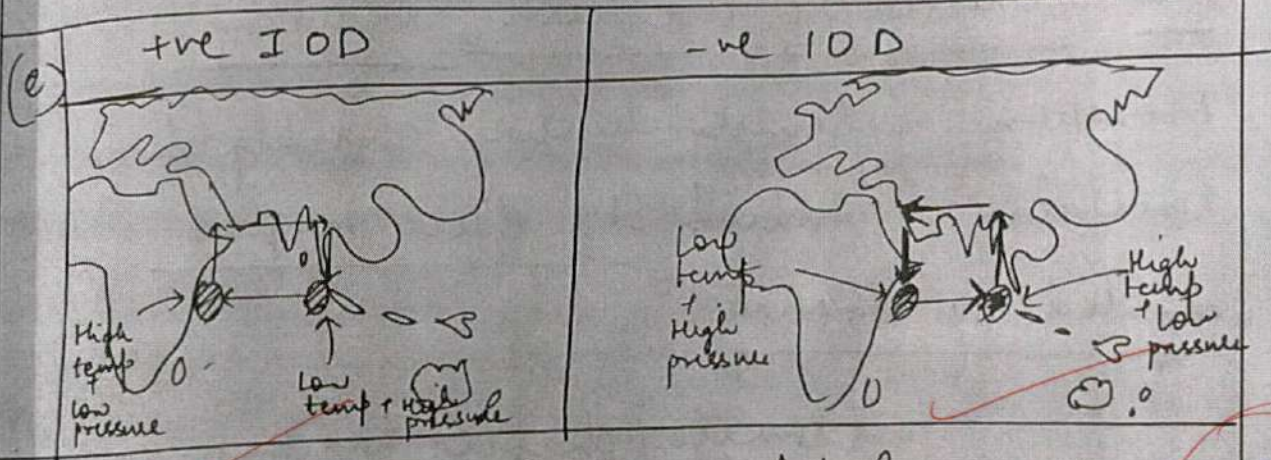 (e)
+ve IOD
-ve IOD
High
temp
+
low
pressure
Low
temp + High
pressure
Low
temp
+
High
pressure
High
temp
+ Low
pressure